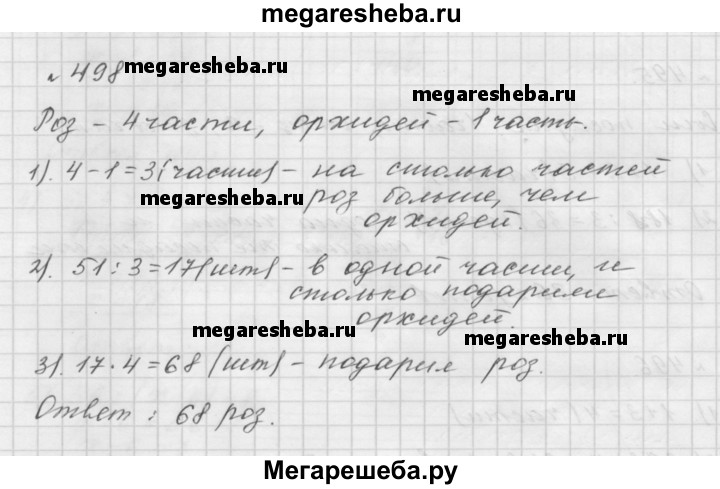 megaresheba.ru
№ 498 megaresheba.ru
megaresheba.ru
Роз - 4 части, орхидей - 1 часть.
1). 4 - 1 = 3 (части) - на столько частей
megaresheba.ru роз больше, чем
орхидей.
2). 51 : 3 = 17 (шт) - в одной части, и
столько подарили
орхидей.
megaresheba.ru
megaresheba.ru
3). 17 · 4 = 68 (шт) - подарил роз.
Ответ : 68 роз.
Мегарешеба.ру